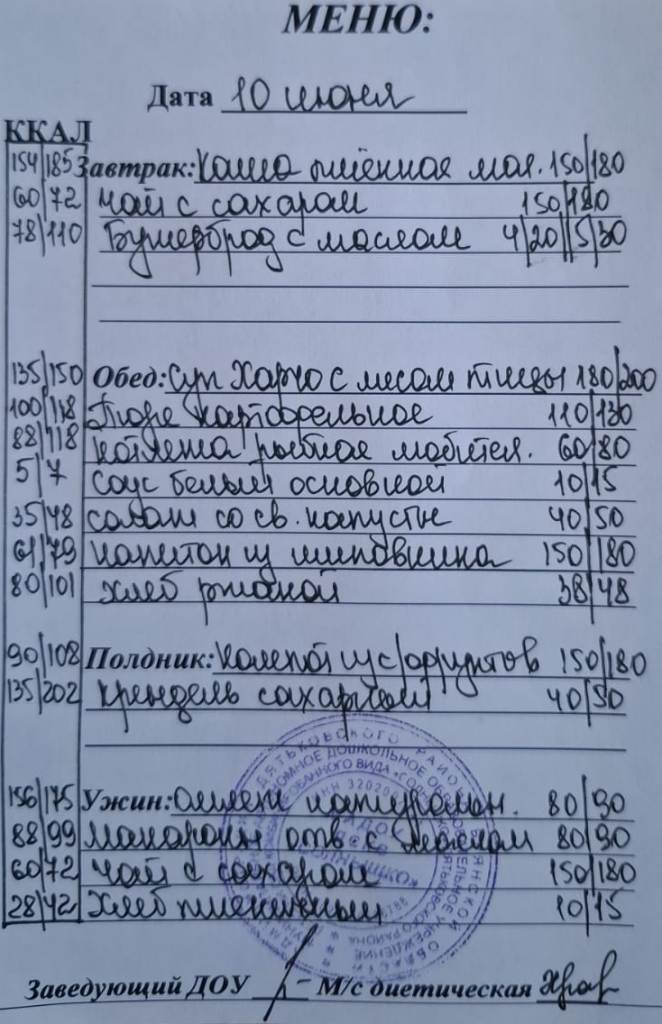 МЕНЮ:
Дата 10 июня
ККАЛ
154/185 Завтрак: Каша пшённая мол. 150/180
60/72 Чай с сахаром 150/180
78/110 Бутерброд с маслом 4/20//5/30
135/150 Обед: Суп Харчо с мясом птицы 180/200
100/118 Пюре картофельное 110/130
88/118 котлета рыбная любител. 60/80
5/7 Соус белый основной 10/15
35/48 салат со св. капусты 40/50
61/79 напиток из шиповника 150/180
80/101 хлеб ржаной 38/48
90/108 Полдник: Компот из с/фруктов 150/180
135/202 крендель сахарный 40/50
156/175 Ужин: Омлет натуральн. 80/90
88/99 Макароны отв с маслом 80/90
60/72 Чай с сахаром 150/180
28/42 Хлеб пшеничный 10/15
Заведующий ДОУ М/с диетическая